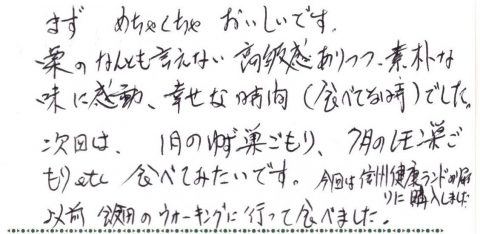 まず めちゃくちゃ おいしいです。
栗のなんとも言えない 高級感ありつつ、素朴な
味に感動、幸せな時間（食べてる時）でした。
次回は、1月のゆず巣ごもり、7月のレモン巣ご
もりetc 食べてみたいです。今回は信州健康ランドの帰
りに購入しました
以前 飯田のウォーキングに行って食べました。